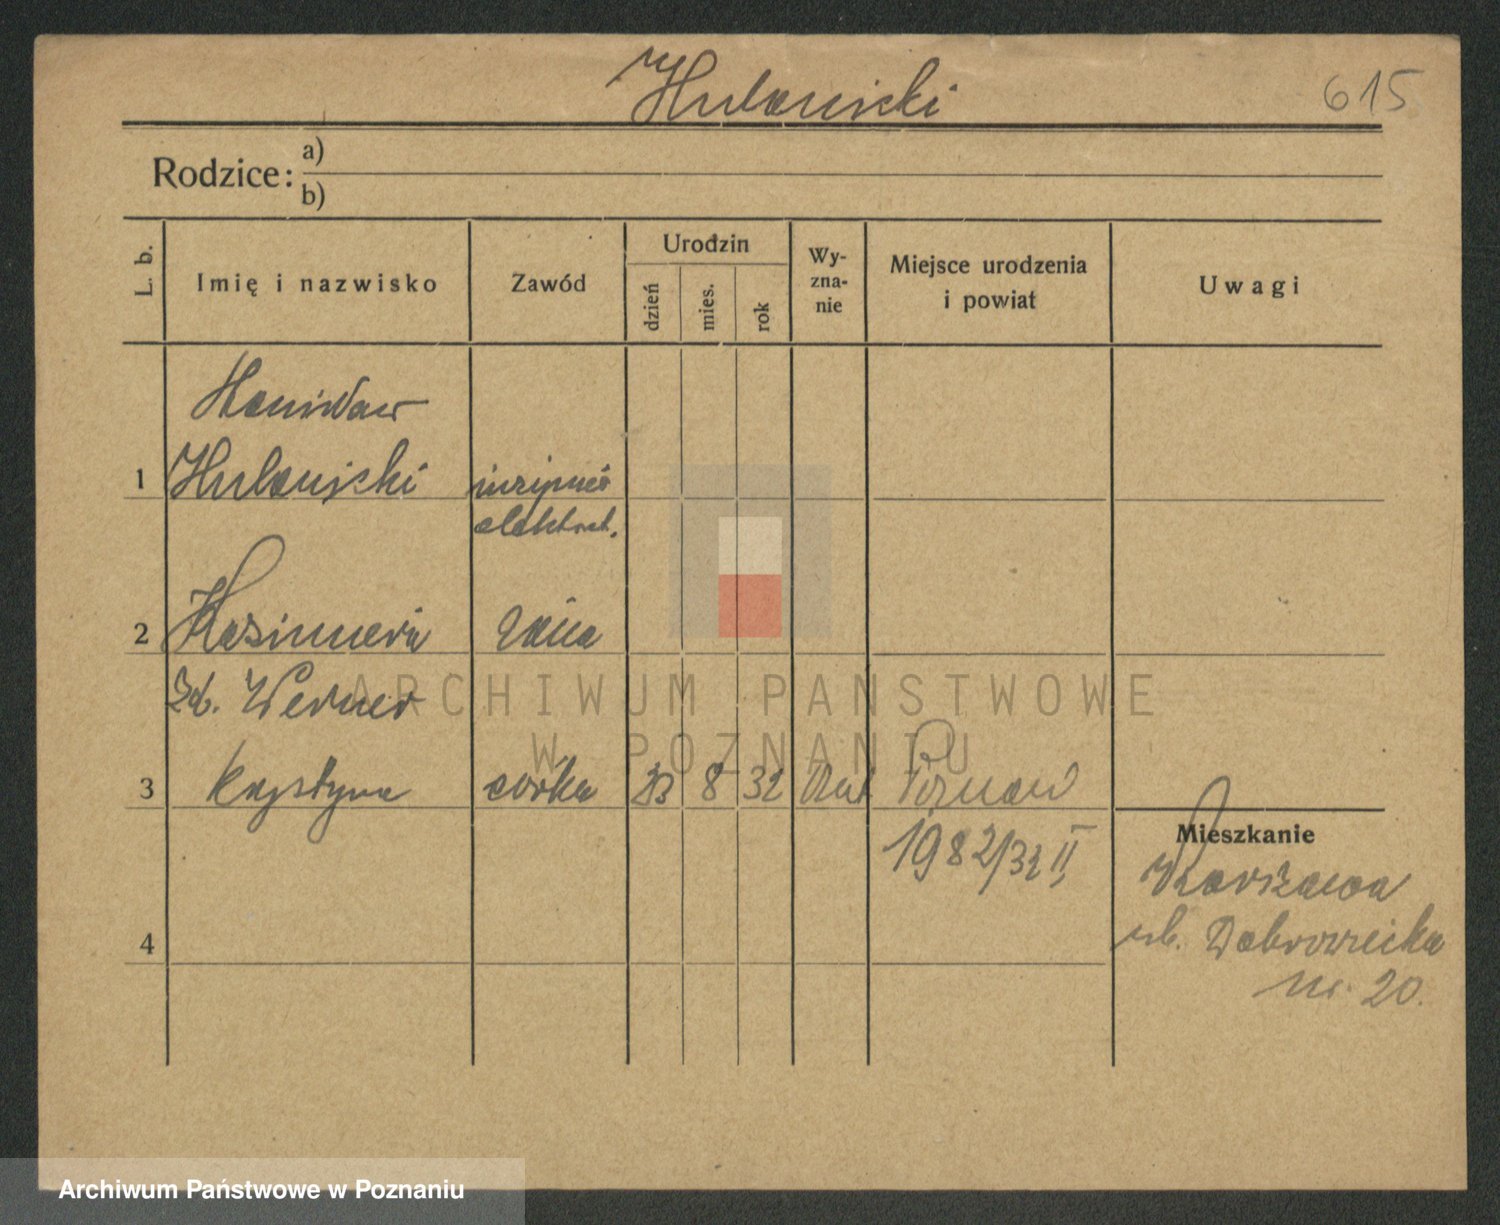 Hulanicki
615
Rodzice: a)
b)
L. b.
Imię i nazwisko
Zawód
Urodzin
dzień
mies.
rok
Wy-
zna-
nie
Miejsce urodzenia
i powiat
Uwagi
Stanisław
1 Hulanicki inżynier
elektrot.
2 Kazimiera żona
zd. Werner
3 Krystyna córka 8 32 Poznań
1982/32 II
Mieszkanie
Warszawa
ul.
nr. 20.
4
ARCHIWUM PANSTWOWE
W POZNANIU
Archiwum Państwowe w Poznaniu